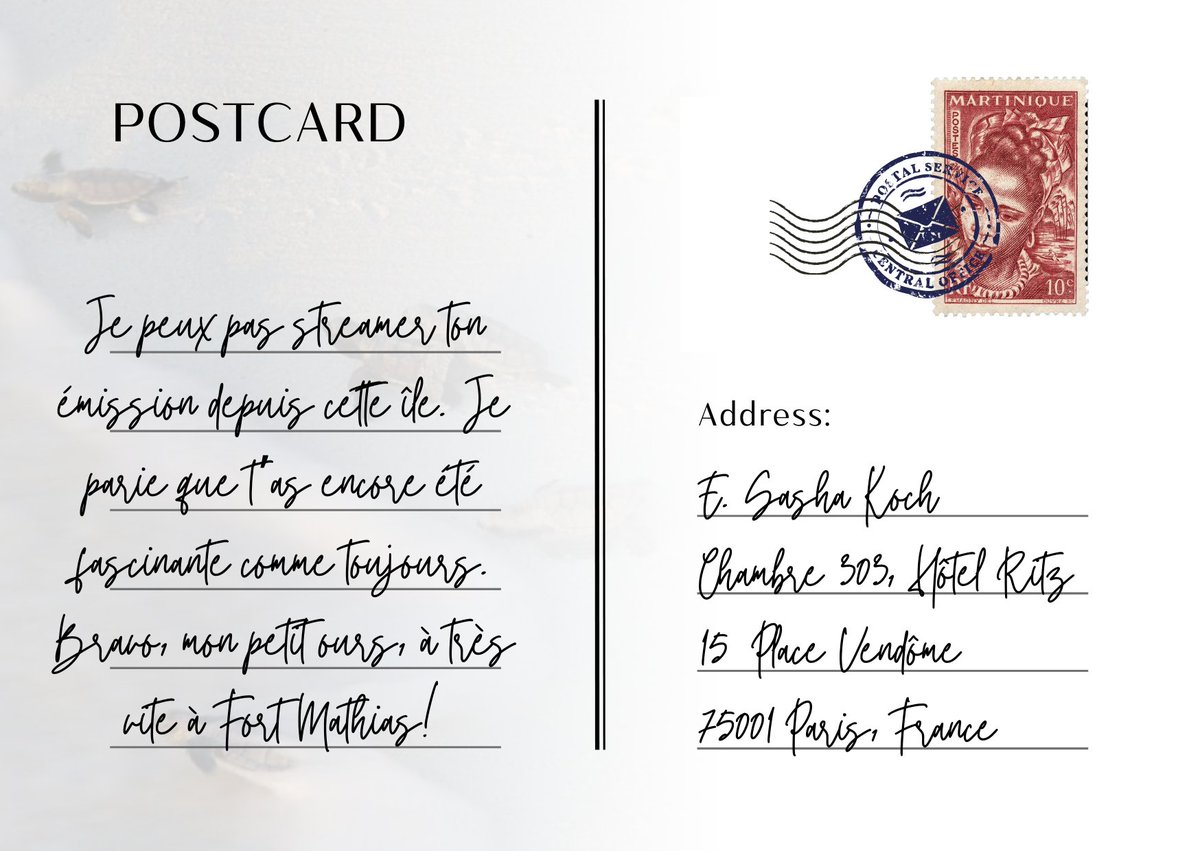 POSTCARD
Je peux pas streamer ton
émission depuis cette île. Je
parie que t'as encore été
fascinante comme toujours.
Bravo, mon petit ours, à très
vite à Fort Mathias!
MARTINIQUE
POSTES
10c
POSTAL SERVICE
CENTRAL OFFICE
Address:
E. Sasha Koch
Chambre 303, Hôtel Ritz
15 Place Vendôme
75001 Paris, France